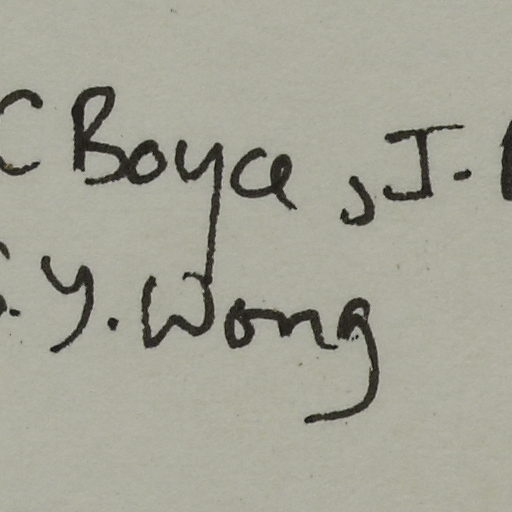 C Boyce, J.
Y. Wong